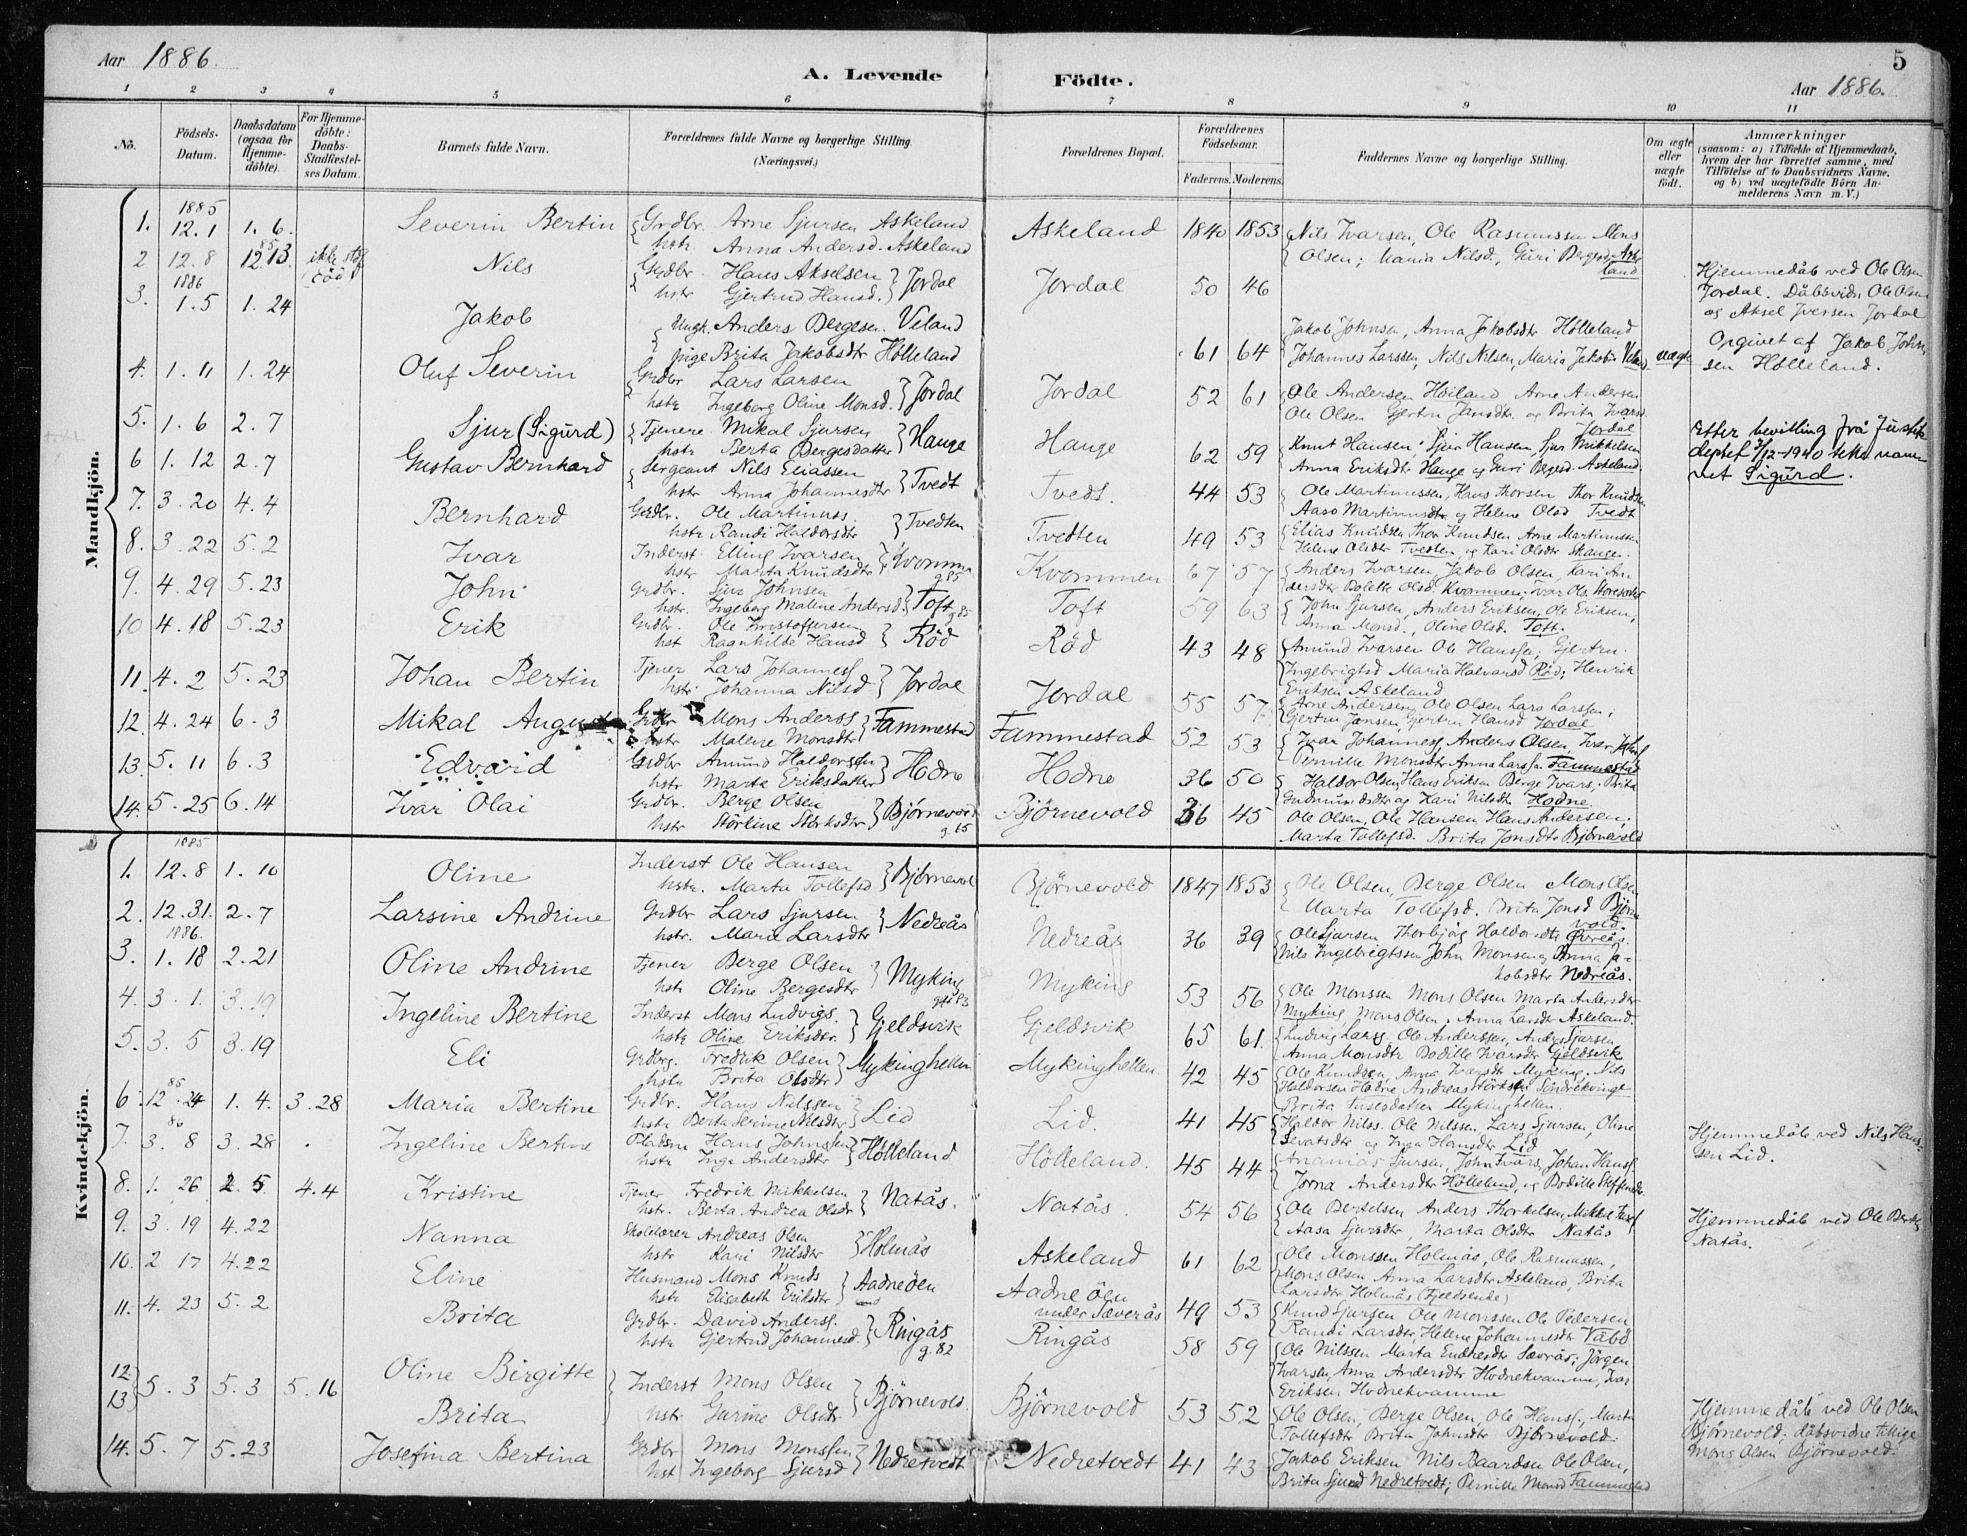 5
Aar 1886.
A. Levende Födte.
Aar 1886.
1 2 3 4 5 6 7 8 9 10 11
No. Födsels-Datum. Daabsdatum (ogsaa for Hjemmedöbte). For Hjemmedöbte: Daabs-Stadfæstelses Datum. Barnets fulde Navn. Forældrenes fulde Navne og borgerlige Stilling. (Næringsvei.) Forældrenes Bopæl. Forældrenes Födselsaar. Faderens. Moderens. Faddernes Navne og borgerlige Stilling. Om ægte eller uægte født. Anmærkninger (saasom: a) i Tilfælde af Hjemmedaab, hvem der har forrettet samme, med Tilföielse af to Daabsvidners Navne, og b) ved uægtefödte Börn Anmelderens Navn m. V.)
Mandkjön.
1. 1885 12.1 1.6. Severin Bertin Grdbr. Arne Sjursen Askeland Askeland 1840 1853 Nils Ivarsen, Ole Rasmussen Mons
hstr. Anna Andersd. Askeland Olsen; Maria Nilsd, Guri Bergesd. Askeland
2 12.8 12 85 13. ikke Nils Grdbr. Hans Akselsen Jordal Jordal 50 46 Hjemmedåb ved Ole Olsen
hstr Gjertrud Hansd. Jordal. Dåbsvidn Ole Olsen
og Aksel Iversen Jordal
3. 1886 1.5 1.24 Jakob Ungk. Anders Bergesen Veland 61 64 Jakob Johnsen, Anna Jakobsdtr Hølleland uægte Opgivet af Jakob Johnsen Hølleland.
pige Brita Jakobsdtr Hølleland Johannes Larssen, Nils Nilsen, Maria Jakobs
4. 1.11 1.24 Oluf Severin Grdbr Lars Larsen Jordal Jordal 52 61 Ole Andersen Høiland Arne Andersen
hstr Ingeborg Oline Monsd. Ole Olsen Gjertru Jansdtr. og Brita Ivarsd Jordal
5. 1.6 2.7 Sjur (Sigurd) Tjenere Mikal Sjursen Hauge Hauge 62 59 Knut Hansen, Sjur Hansen, Sjur Mikkelsen
hstr Berta Bergesdatter Anna Eriksdtr Hauge og Guri Bergesd. Askeland.
Etter bevilling frå Justis
deptet 7/12-1940 teke namnet Sigurd.
6 1.12 2.7 Gustav Bernhard Sergeant Nils Eliassen Tvedt Tvedt. 44 53 Ole Martinussen, Hans Thorsen Thor Knudsen
hstr Anna Johannesdtr Aaso Martinusdtr og Helene Olsd Tvedt
7. 3.20 4.4 Bernhard Grdbr. Ole Martinuss. Tvedten Tvedten 49 53 Elias Knudsen Thor Knudsen Arne Martinussen
hstr Randi Haldorsdtr Helene Olsdtr Tvedten og Kari Olsdtr Skauge.
8. 3.22 5.2 Ivar Inderst. Elling Ivarsen Kvommen Kvommen 67 57 Anders Ivarsen, Jakob Olsen, Kari Andersdtr
hstr Marta Knudsdtr g. 85 Bolette Olsd Kvommen;
9. 4.29 5.23 John Grdbr. Sjur Johnsen Toft Toft 59 63 John Sjursen, Anders Eriksen, Ole Eriksen,
hstr. Ingeborg Malene Andersd. g. 85 Anna Monsd., Oline Olsd. Toft.
10 4.18 5.23 Erik Grdbr. Ole Kristoffersen Rød Rød 43 48 Amund Ivarsen Ole Hanssen; Gjertru.
hst Ragnhilde Hansd Ingebrigtsd Maria Halvarsd Rød; Henrik
Eriksen Askeland
11. 4.2 5.23 Johan Bertin Tjener Lars Johanness Jordal Jordal 55 57 Arne Andersen, Ole Olsen Lars Larssen;
hstr. Johanna Nilsd Gjertru Jansen, Gjertru Hansd Jordal
12. 4.24 6.3 Mikal August Grdbr Mons Anderss Fammestad Fammestad 52 53 Ivar Johanness, Anders Olsen,
hstr Malene Monsdtr Pernille Monsdtr Anna Larssen Fammestad
13. 5.11 6.3 Edvard Grdbr Amund Haldorsen Hodne Hodne 36 50 Haldor Olsen, Hans Eriksen Berge Ivars, Brita
hstr Marta Eriksdatter Gudmundsdtr og Kari Nilsdtr Hodne.
14. 5.25 6.14 Ivar Olai Grdbr. Berge Olsen Bjørnevold Bjørnevold 36 45 Ole Olsen, Ole Hansen, Hans Andersen;
hstr Størkine Størksdtr g. 65 Marta Tollefsd. Brita Jonsdtr Bjørnevold
Kvindekjön.
1. 1885 12.8 1.10 Oline Inderst Ole Hansen Bjørnevold Bjørnevold 1847 1853 Ole Olsen, Berge Olsen Mons Olsen
hstr. Marta Tollefsd Marta Tollefsd. Brita Jonsd Bjørnevold.
2. 12.31. 2.7 Larsine Andrine Grdbr Lars Sjursen Nedreås Nedreås 36 39 Ole Sjursen Thorbjørg Haldorsdtr Øvreås.
hstr. Mari Larsdtr Nils Ingebrigtssen John Monsen og Anna Jakobsdtr Nedreås.
3. 1886. 1.18 2.21 Oline Andrine Tjener Berge Olsen Myking Myking 53 56 Ole Monssen Mons Olsen Marta Andersdtr
hstr Oline Bergesdtr Myking Mons Olsen, Anna Larsdtr Askeland.
4. 3.1. 3.19 Ingeline Bertine Inderst Mons Ludvigs. Gjeldsvik Gjeldsvik 65 61. Ludvig Larss. Ole Anderssen, Anders Sjursen
hstr Oline Eriksdtr. Anna Monsdtr Bodille Ivarsdtr Gjeldsvik
5. 3.5 3.19 Eli Grdbrg. Fredrik Olsen Mykinghellen Mykinghellen 42 45 Ole Knudsen, Anna Ivarsdtr Myking. Nils
hstr Brita Olsdtr Haldorsen Hodne Andreas Størksen
Brita Mykinghellen.
6. 85 12.24 1.4. 3.28 Maria Bertine Grdbr. Hans Nilssen Lid Lid. 41 45 Haldor Nilss. Ole Nilssen, Lars Sjursen, Oline
hstr Berta Serine Nilsdtr og Inga Hansdtr Lid
Hjemmedåb ved Nils Hanssen Lid.
7. 86 3.8 3.28 Ingeline Bertine Pladsm Hans Johnsen Hølleland Hølleland. 45 44 Ananias Sjursen, John Ivars, Johan Hanss.
hstr. Inga Andersdtr Jorna Andersdtr Hølleland, og Bodille Steffensdtr
8. 1.26 2.5 4.4 Kristine Tjener Fredrik Mikkelsen Natås. Natås. 54 56 Ole Bertelsen Anders Thorkelsen,
hstr. Berta Andrea Olsdtr Aasa Sjursdtr, Marta Olsdtr Natås
Hjemmedåb ved Ole Bertels
Natås.
9. 3.19 4.22 Nanna Skolelærer Andreas Olsen Holmås Askeland 61 62 Ole Monssen Holmås, Ole Rasmussen,
hstr Kari Nilsdtr Mons Olsen Anna Larsdtr Askeland, Brita
Larsdtr Holmås (Fjeldsende)
10. 2.17 4.22 Eline Husmand Mons Knuds Aadneøen Aadneøen under Sæverås 49 53 Knud Sjursen Ole Monssen Ole Pedersen
hstr Elisabeth Eriksdtr Randi Larsdtr, Helene Johannesdtr Våbø
11. 4.23 5.2 Brita Grdbr. David Anderss. Ringås Ringås 58 59 Ole Nilssen Marta Endresdtr Sævrås; Jørgen
hstr Gjertrud Johannesd. g. 82 Ivarsen, Anna Andersdtr Hodnekvamme, Ivar
Eriksen Hodnekvamme
12 13 5.3 5.3 5.16 Oline Birgitte Inderst Mons Olsen Bjørnevold. Bjørnevold 53 52 Ole Olsen, Berge Olsen, Ole Hanss., Marta
Brita hst Gurine Olsdtr Tollefsdtr Brita Johnsdtr Bjørnevold.
Hjemmedåb ved Ole Olsen
Bjørnevold; dåbsvidne tillige
Mons Olsen Bjørnevold.
14. 5.7 5.23 Josefina Bertina Grdbr Mons Monssen Nedretvedt Nedretvedt 41 43 Jakob Eriksen Nils Baardsen Ole Olsen,
hst Ingeborg Sjursd Brita Sjursd Nedretvedt; Pernille Monsd Fammestad